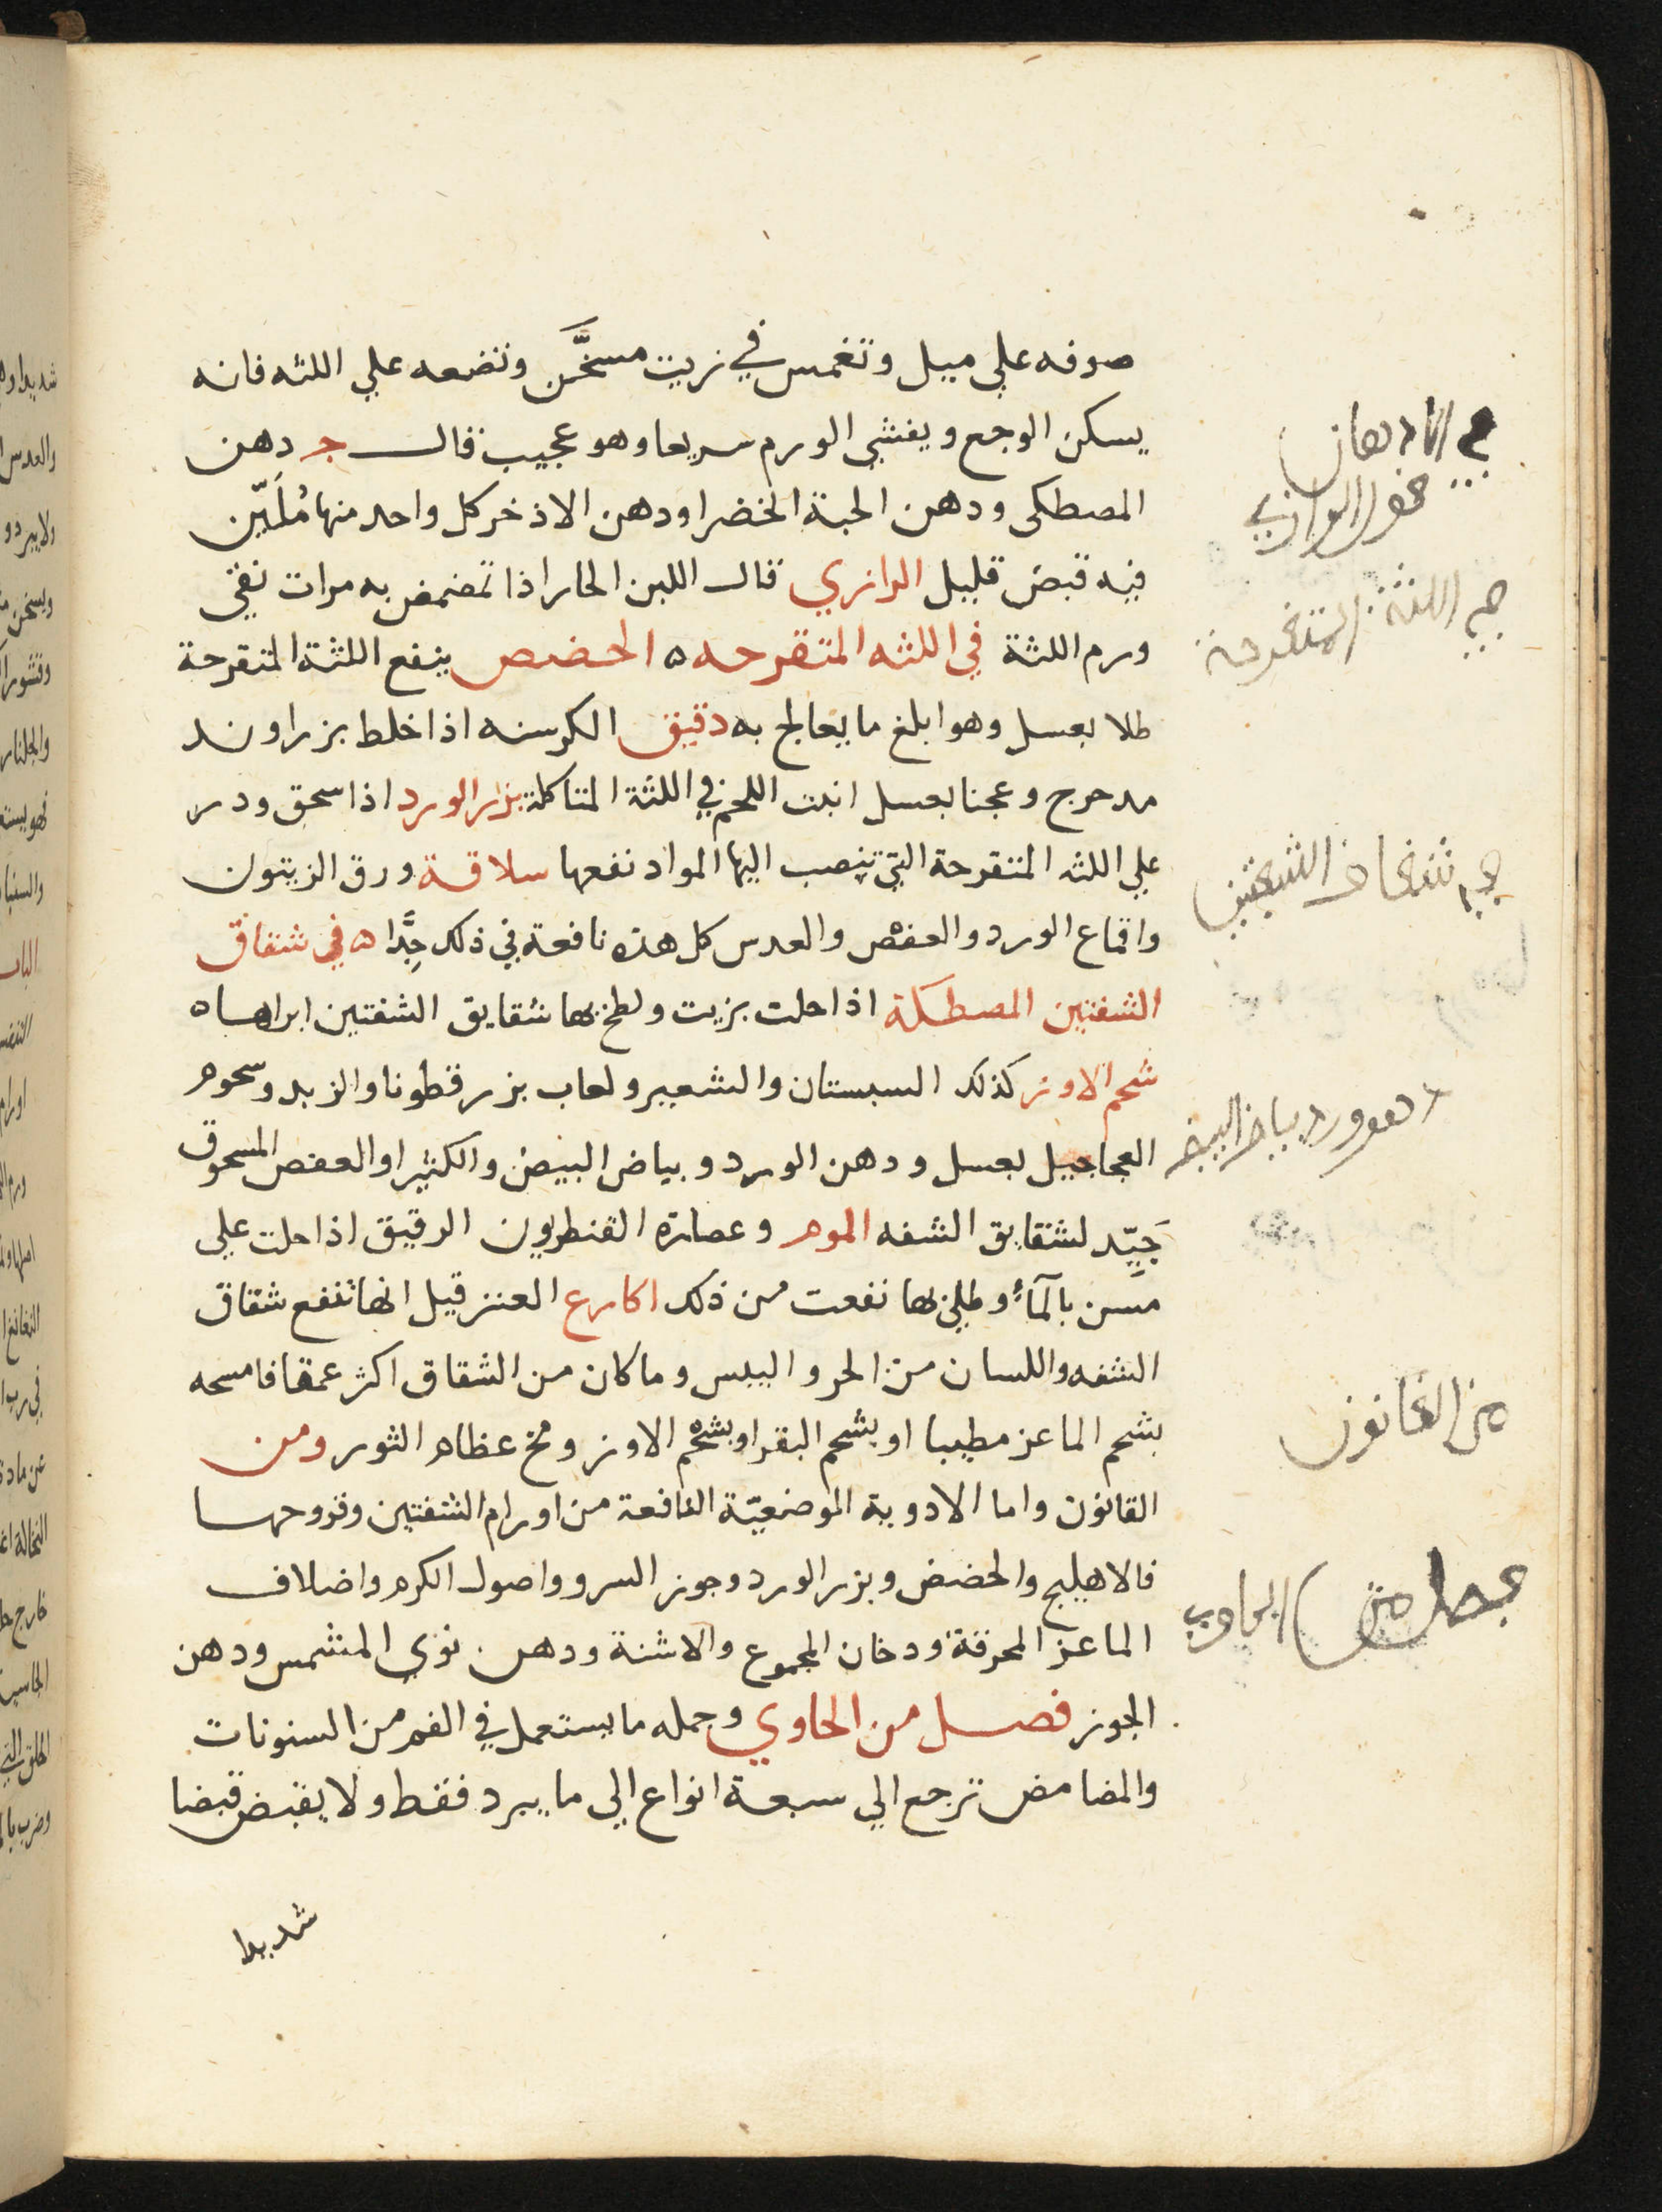 صوفه علي ميل وتغمس في زيت مسخَّن وتضعه علي اللثه فانه
يسكن الوجع ويفشي الورم سريعا وهو عجيب قال ج دهن
المصطكى ودهن الحبة الخضرا ودهن الاذخر كل واحد منها مُلَيّن
فيه قبض قليل الرازي قال اللبن الحار اذا تمضمض به مرات نقي
ورم اللثة في اللثه المتقرحه ه الحضض ينفع اللثة المتقرحة
طلا بعسل وهو ابلغ ما يعالج به دقيق الكرسنه اذا خلط بزراوند
مدحرج وعجنا بعسل انبت اللحم في اللثة المتاكلة بزر الورد اذا سحق ودر
علي اللثه المتقرحة التي تنصب اليها المواد نفعها سلاقة ورق الزيتون
واقماع الورد والعفص والعدس كل هذه نافعة في ذلك جِدًّا ه في شقاق
الشفتين المصطكة اذا حلت بزيت ولطخ بها شقايق الشفتين ابراها ه
شحم الاوز كذلك السبستان والشعير ولعاب بزر قطونا والزبد وسحوم
العجاجيل بعسل ودهن الورد وبياض البيض والكثيرا والعفص المسحوق
جَيِّد لشقايق الشفه الموم وعصارة القنطريون الرقيق اذا حلت علي
مسن بالمآء وطلي بها نفعت من ذلك اكارع العنز قيل انها تنفع شقاق
الشفه واللسان من الحر والیبس وما كان من الشقاق اكثر عمقا فامسحه
بشحم الماعز مطيبا او بشحم البقر او بشحم الاوز ومخ عظام الثور ومن
القانون واما الادوية الموضعيّة النافعة من اورام الشفتين وقروحها
فالاهليلج والحضض وبزر الورد وجوز السرو واصول الكرم واضلاف
الماعز المحرقة ودخان المجموع والاشنة ودهن نوي المشمس ودهن
الجوز فصل من الحاوي وجمله ما يستعمل في الفم من السنونات
والمضامض ترجع الي سبعة انواع الي ما يبرد فقط ولا يقبض قبضا
شديدا
في الادهان
الرازي
في اللثة المتقرحة
في شقاق الشفتين
بياض البيض
من القانون
فصل من الحاوي